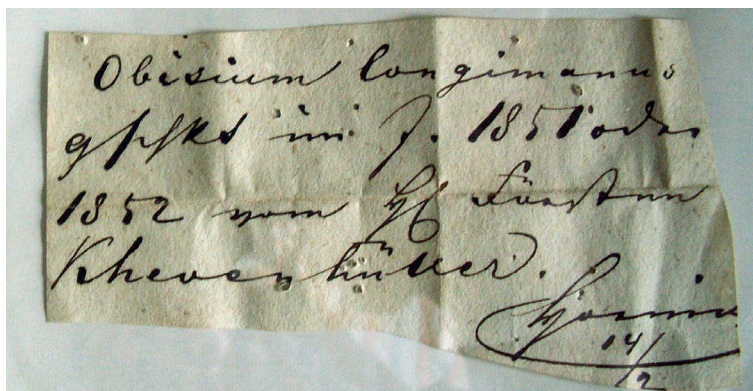 Obisium longimanus
gschkt im J. 1851 oder
1852 vom H Fürsten
Khevenhüller.
14/2